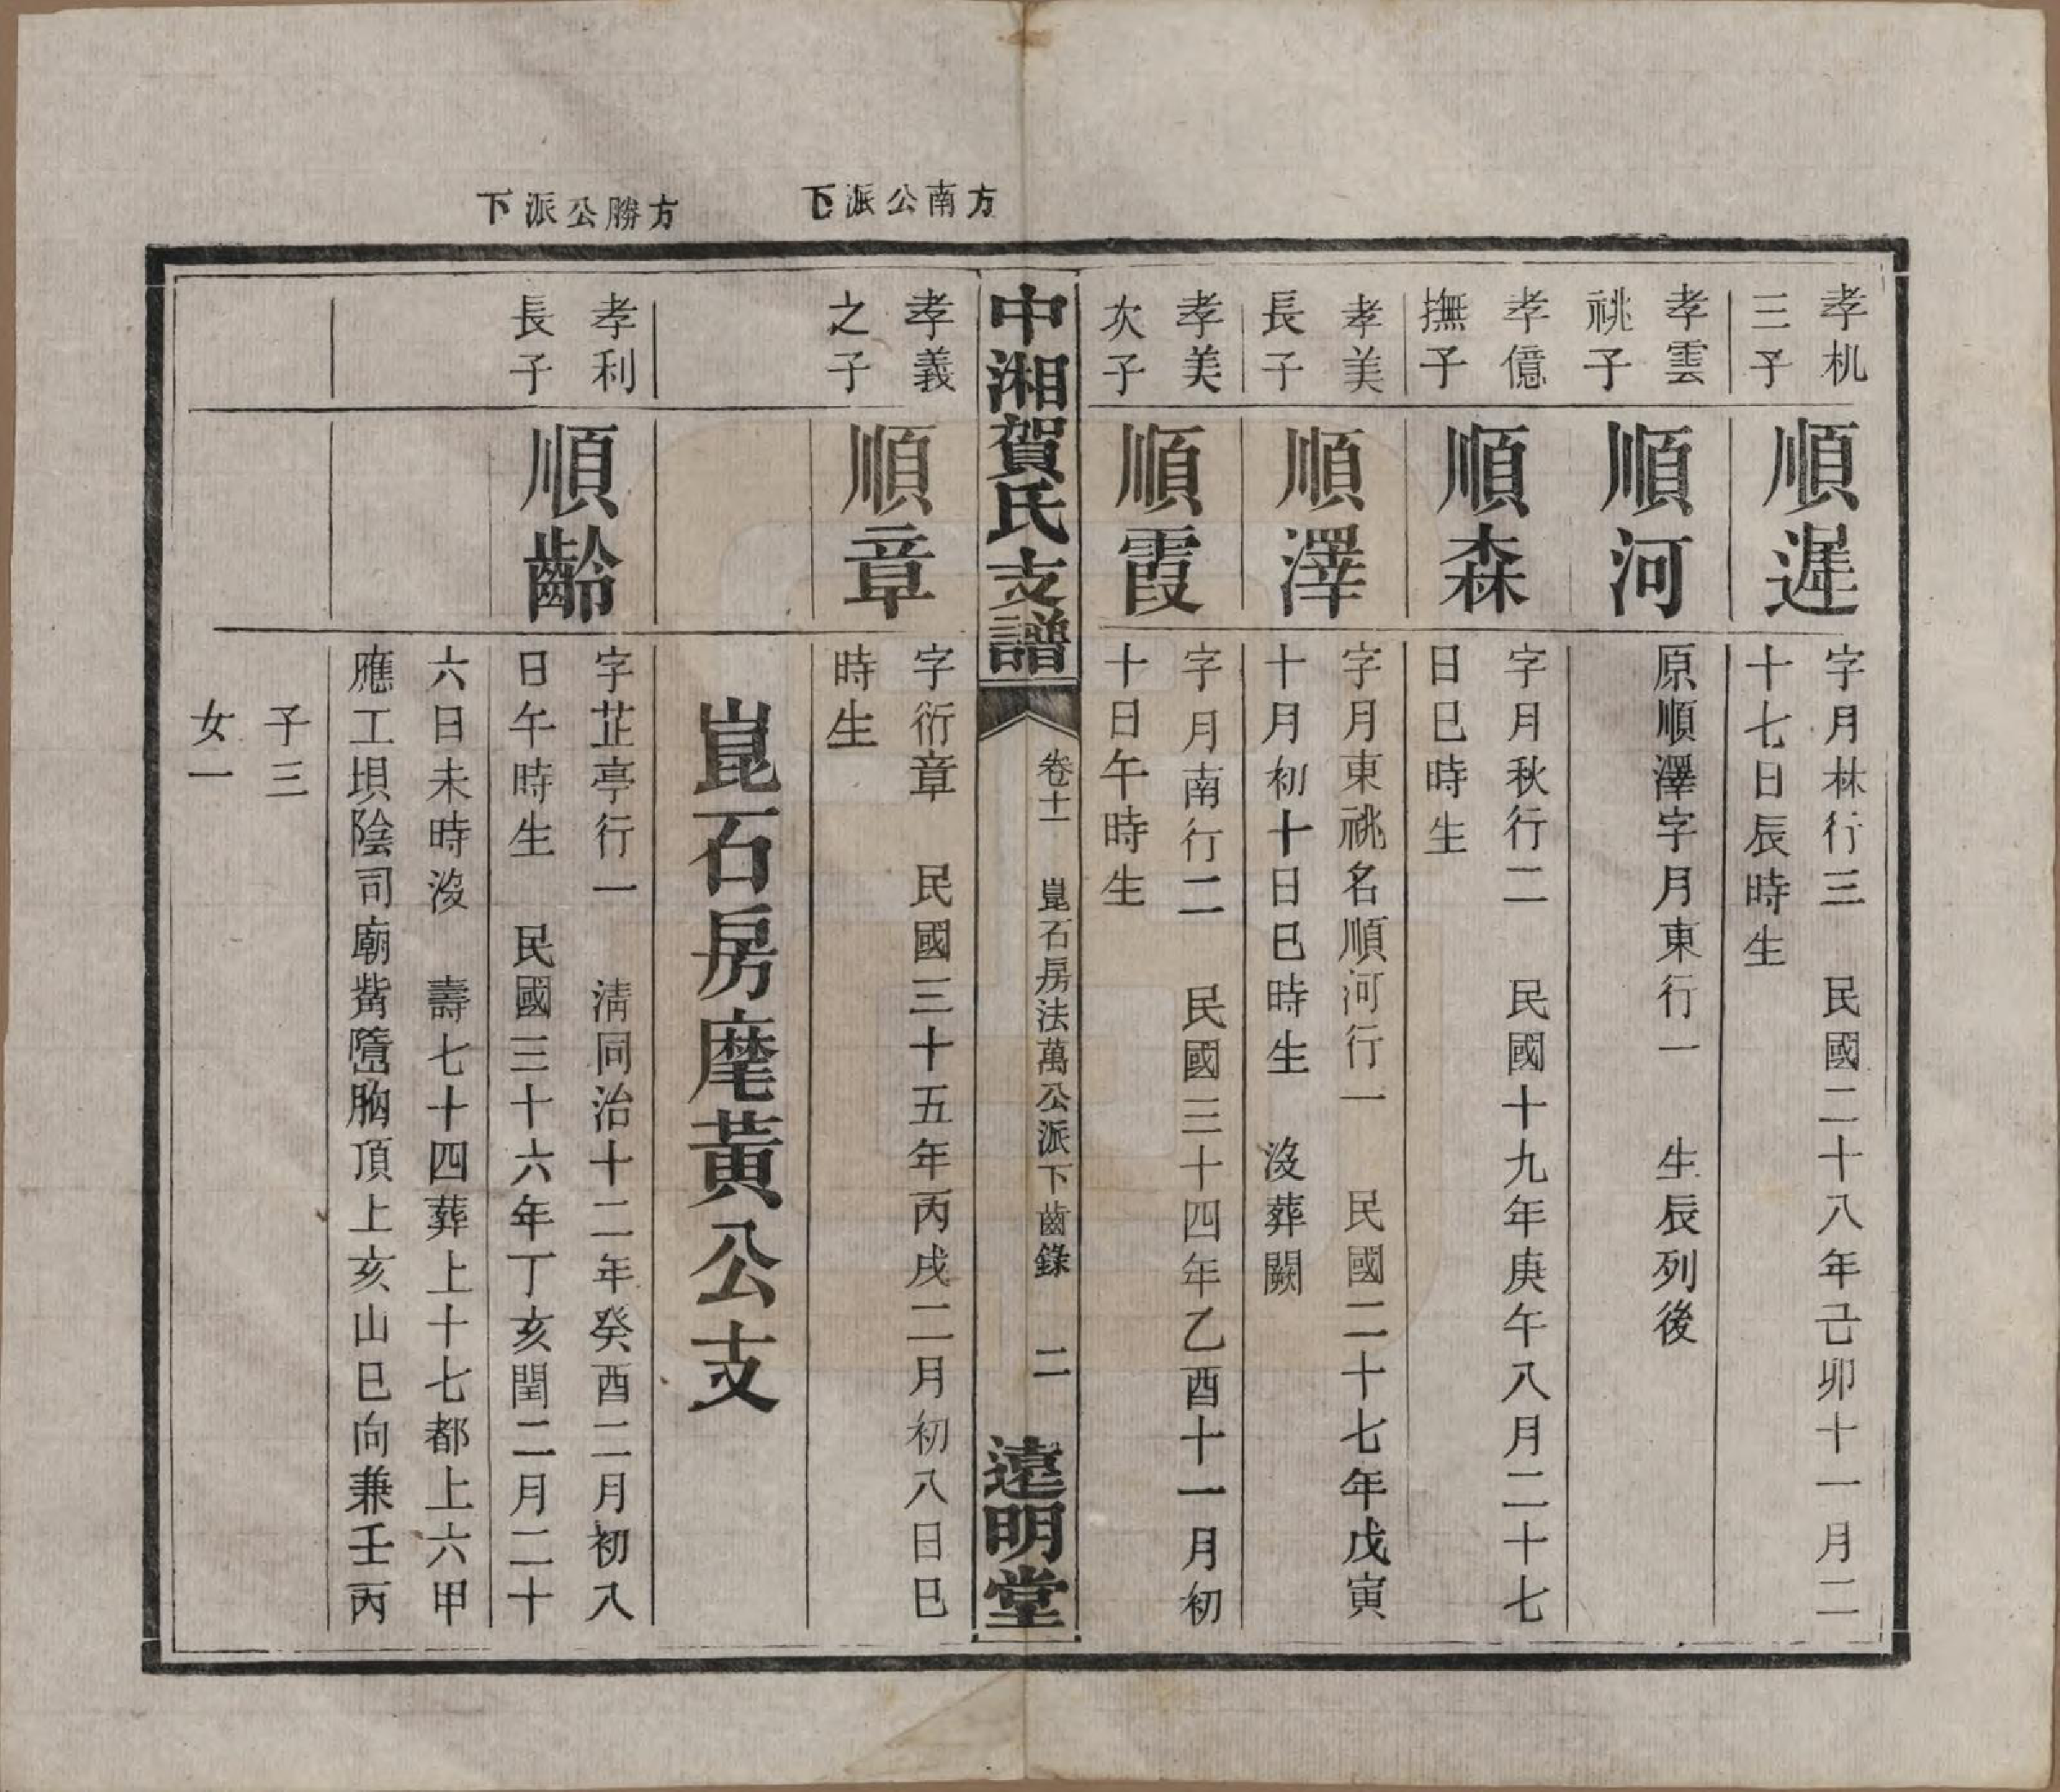 方南公派下
方勝公派下
孝机
三子
順遲
字月林行三　民國二十八年己卯十一月二
十七日辰時生
孝雲
祧子
順河
原順澤字月東行一　生辰列後
孝億
撫子
順森
字月秋行二　民國十九年庚午八月二十七
日巳時生
孝美
長子
順澤
字月東祧名順河行一　民國二十七年戊寅
十月初十日巳時生　沒葬闕
孝美
次子
順霞
字月南行二　民國三十四年乙酉十一月初
十日午時生
中湘賀氏支譜
卷十一　崑石房法萬公派下齒錄　二
遠明堂
孝義
之子
順章
字衍章　民國三十五年丙戌二月初八日巳
時生
崑石房麾黃公支
孝利
長子
順齡
字芷亭行一　清同治十二年癸酉二月初八
日午時生　民國三十六年丁亥閏二月二十
六日未時沒　壽七十四葬上十七都上六甲
應工垻陰司廟嘴墮胸頂上亥山巳向兼壬丙
子三
女一